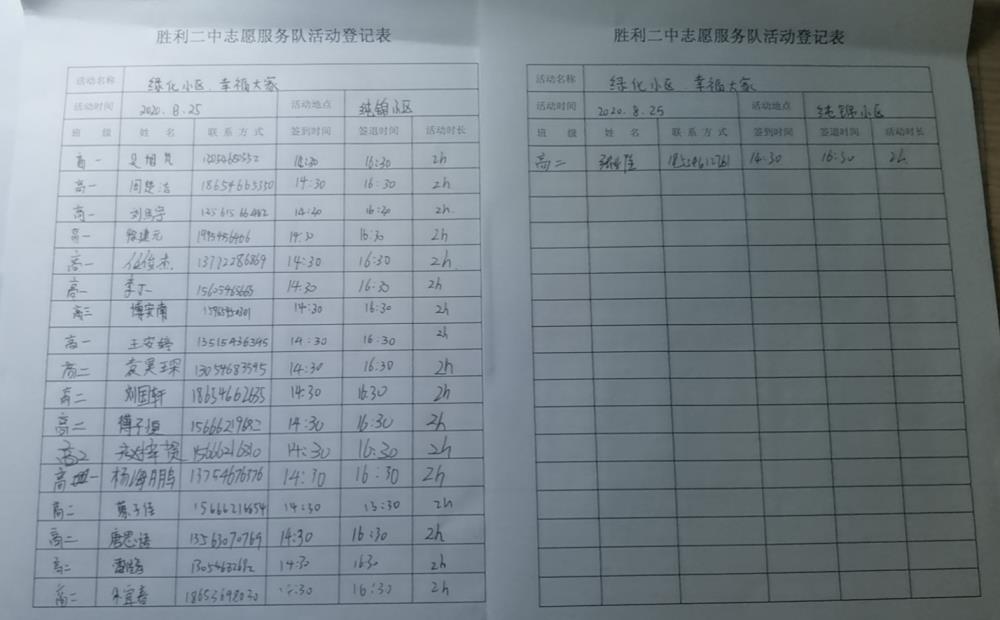 胜利二中志愿服务队活动登记表
活动名称 绿化小区 幸福大家
活动时间 2020.8.25 活动地点 纯锦小区
班 级 姓 名 联系方式 签到时间 签退时间 活动时长
高一 14:30 16:30 2h
高一 周楚洁 18654665350 14:30 16:30 2h
高一 16:30 2h
高一 14:30 16:30 2h
高一 任俊杰 13712286869 14:30 16:30 2h
高一 14:30 16:30 2h
高三 傅安南 14:30 16:30 2h
高一 王安婷 13515436395 14:30 16:30 2h
高二 袁昊琛 13054683595 14:30 16:30 2h
高二 刘国轩 18654662655 14:30 16:30 2h
高二 傅子恒 14:30 16:30 2h
高二 14:30 16:30 2h
高一 杨海鹏 13754676576 14:30 16:30 2h
高二 14:30 2h
高二 唐思语 13563070769 14:30 16:30 2h
高二 14:30 16:30 2h
高二 18653698030 16:30 2h
胜利二中志愿服务队活动登记表
活动名称 绿化小区 幸福大家
活动时间 2020.8.25 活动地点 纯锦小区
班 级 姓 名 联系方式 签到时间 签退时间 活动时长
高二 14:30 16:30 2h